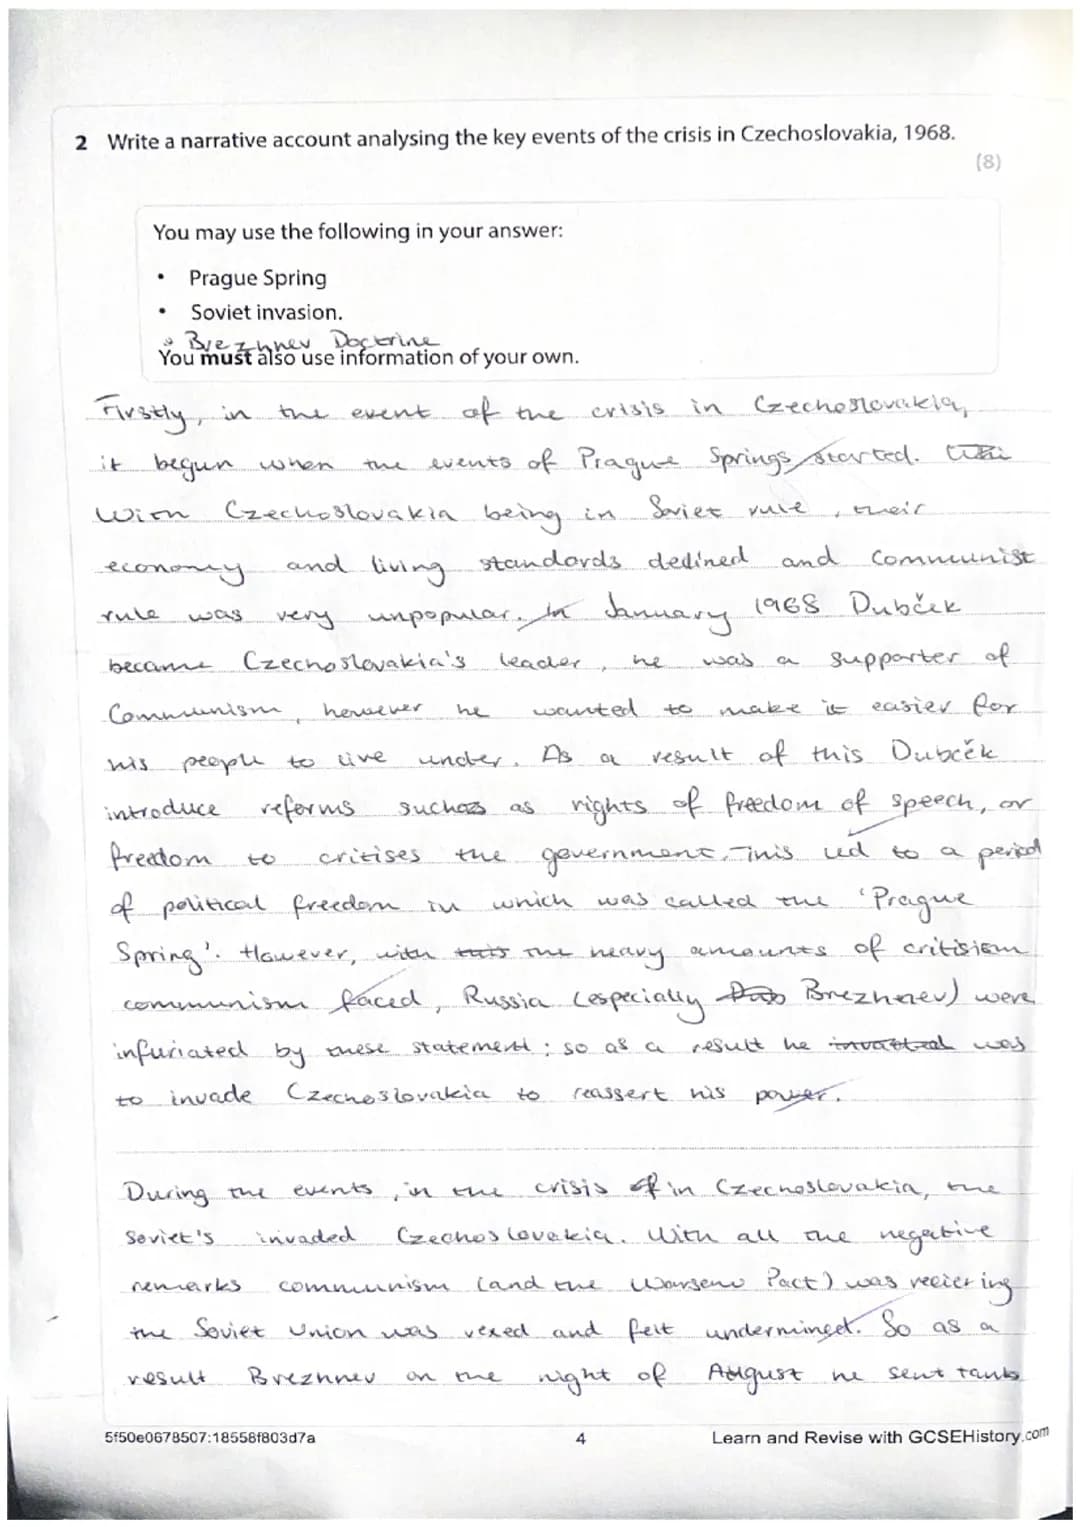 2 Write a narrative account analysing the key events of the crisis in Czechoslovakia, 1968.
(8)
You may use the following in your answer:
• Prague Spring
• Soviet invasion.
• Brezhnev Doctrine
You must also use information of your own.
Firstly, in the event of the crisis in Czechoslovakia,
it begun when the events of Prague Springs started.
With Czechoslovakia being in Soviet rule, their
economy and living standards declined and Communist
rule was very unpopular. In January 1968 Dubček
became Czechoslovakia's leader, he was a supporter of
Communism, however he wanted to make it easier for
his people to live under. As a result of this Dubcěk
introduce reforms such as as rights of freedom of speech, or
freedom to critises the government. This led to a period
of political freedom in which was called the 'Prague
Spring'. However, with this the heavy amounts of critisism
communism faced, Russia (especially Brezhnev) were
infuriated by these statement; so as a result he was
to invade Czechoslovakia to reassert his power.
During the events, in the crisis of in Czechoslovakia, the
Soviet's invaded Czechoslovakia. With all the negative
remarks communism (and the Warsaw Pact) was recieving
the Soviet Union was vexed and felt undermined. So as a
result Brezhnev on the night of August he sent tanks
5f50e0678507:18558f803d7a
4
Learn and Revise with GCSEHistory.com